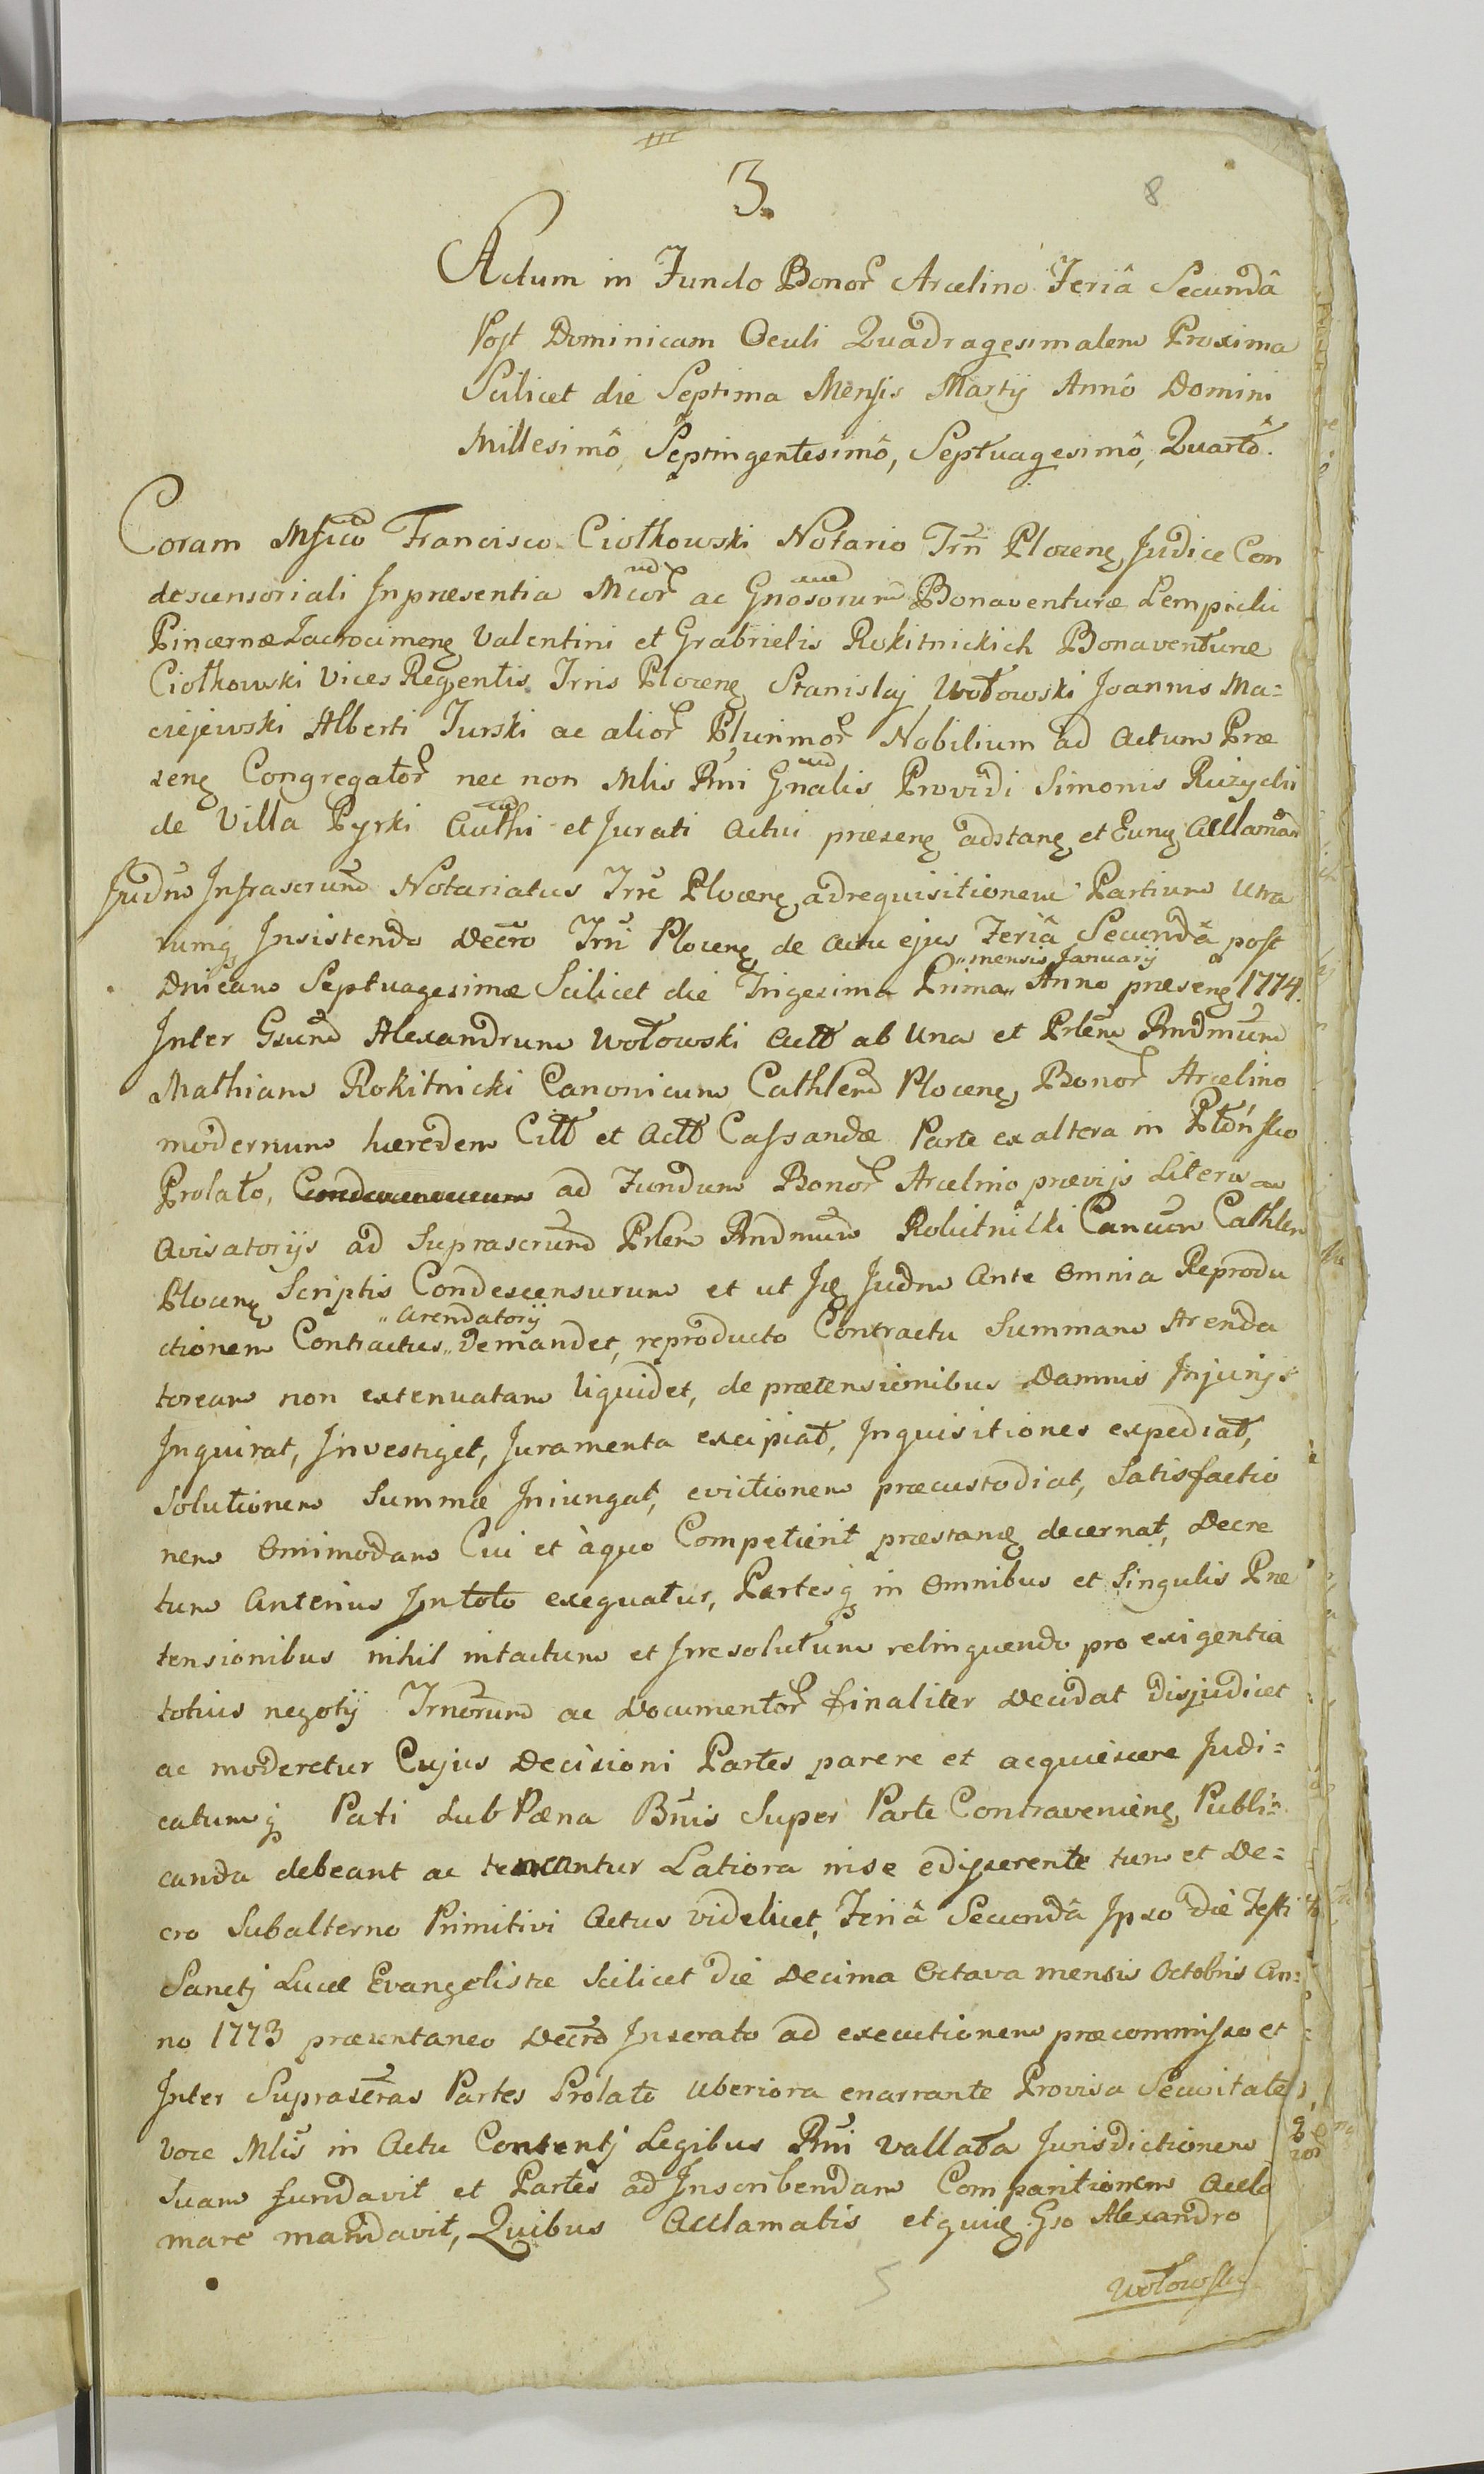 III
3.
8
Actum in Fundo Bonor Arcelino Feriâ Secundâ
Post Dominicam Oculi Quadragesimalem Proxima
Scilicet die Septima Mensis Martij Annô Domini
Millesimô, Septingentesimô, Septuagesimô, Quartô.
Coram Mfico Francisco Ciołkowski Notario Trrī Plocenę Judice Con
descensoriali Inpræsentia Mcor ac Gnosorum Bonaventuræ Lempicki
Pincernæ Zacrocimenę Valentini et Grabrielis Rokitnickich Bonaventuræ
Ciołkowski Vices Regentis Trris Plocenę Stanislaj Wołowski Joannis Ma=
ciejewski Alberti Turski ac alior Plurimor Nobilium ad Actum Præ
senę Congregator nec non Mlis Rni Gnalis Providi Simonis Rużycki
de Villa Pyrki Authi et Jurati Actui præsenę adstanę et Eunę Acclaman
Judm Infrascrum Notariatus Trrē Plocenę adrequisitionem Partium Utra
rumq Insistendo Decro Trrī Plocenę de actu ejus Feriâ Secundâ post
Dnicam Septuagesimæ Scilicet die Trigesima Prima „mensis Januarij Anno præsenę 1774.
Inter Gsum Alexandrum Wołowski Actt ab Una et Prlem Rndmum
Mathiam Rokitnicki Canonicum Cathlem Plocenę Bonor Arcelino
modernum hæredem Citt et Actt Cassandæ Parte ex altera in Płońsko
Prolato, ad Fundum Bonor Arcelino prævijs Literis
Avisatorijs ad Suprascrum Prlem Rndmum Rokitnicki Cancum Cathlem
Plocenę Scriptis Condescensurum et ut Ję Judm Ante Omnia Reprodu
ctionem Contractus „arendatorij Demandet, reproducto Contractu Summam Arenda
toream non extenuatam liquidet, de prætensionibus Damnis Injurijs
Inquirat, Investiget, Juramenta excipiat, Inquisitiones expediat,
Solutionem Summæ Iniungat, evictionem præcustodiat, Satisfactio
nem Omimodam Cui et àquo Competierit præstanę decernat, Decre
tum Anterius Intoto exequatur, Partesq in Omnibus et Singulis Præ
tensionibus nihil intactum et Irresolutum relinquendo pro exigentia
totius negotij Trnorum ac Documentor finaliter Decidat Disjudicet
ac moderetur Cujus Decisioni Partes parere et acquiescere Judi=
catumq Pati Sub Pæna Bnis Super Parte Contravenienę Publi=
canda debeant ac teneantur Latiora in se edisserente tum et De=
cro Subalterno Primitivi Actus videlicet, Feriâ Secundâ Ipso die Festi
Sanctj Lucæ Evangelistæ Scilicet die Decima Octava mensis Octobris An=
no 1773 præsentaneo Decro Inserato ad executionem præcommisso et
Inter Suprascras Partes Prolato Uberiora enarrante Provisa Securitate
voce Mlis in Actu Contentj Legibus Rni vallata Jurisdictionem
Suam fundavit et Partes ad Inscribendam Comparitionem Accla
mare mandavit, Quibus Acclamatis et quię Gso Alexandro
5
Wołowski